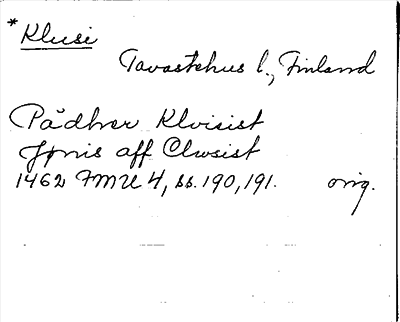 *Klusi
Tavastehus l., Finland
Pādhver Klvisist
Jønis aff Clwsist
1462 FMU 4, ss. 190, 191. orig.